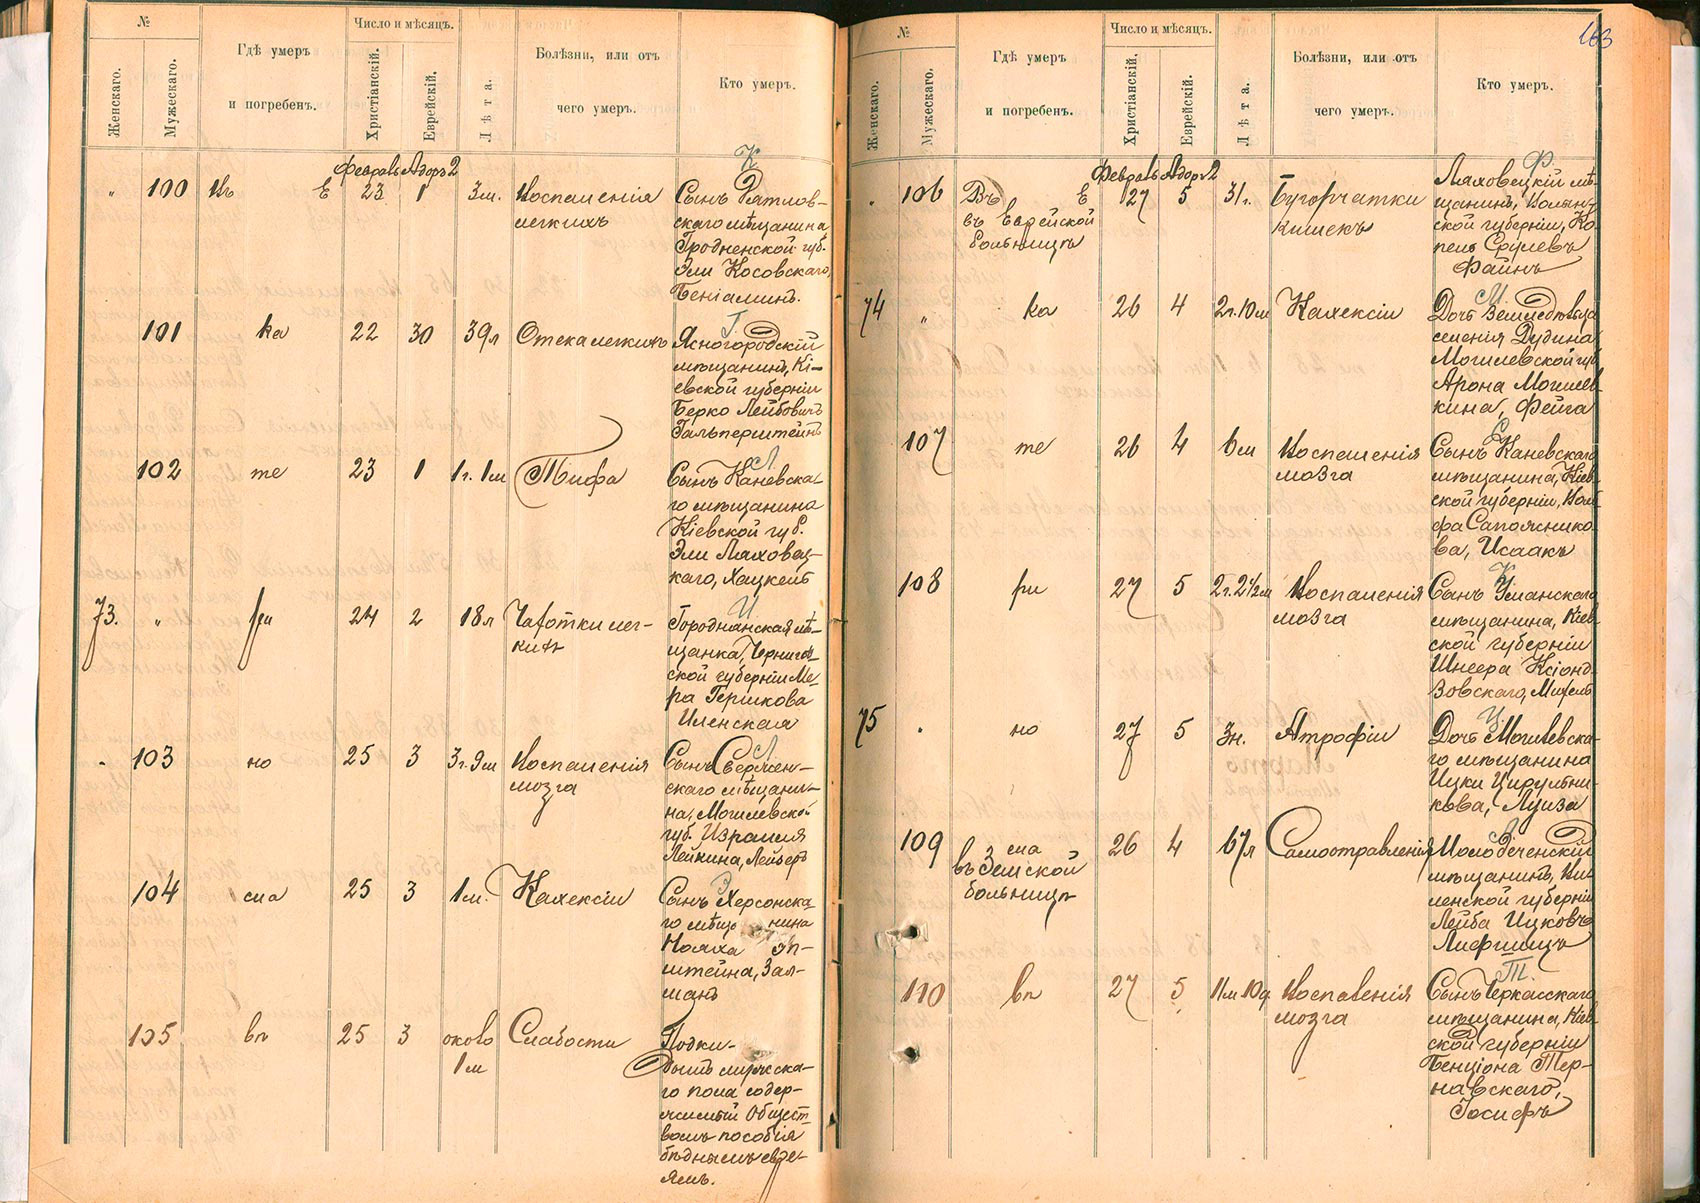 №
Число и мѣсяцъ.
Женскаго.
Мужескаго.
Гдѣ умеръ
и погребенъ.
Христіанскій.
Еврейскій.
Лѣта.
Болѣзни, или отъ
чего умеръ.
Кто умеръ.
Февраль Адоръ 2
К
„ 100
Е 23 1 3м. Воспаленія
легкихъ
Сынъ Дятлов-
скаго мѣщанина
Гродненской губ.
Эли Косовскаго,
Беніаминъ.
101 ка 22 30 39л Отека легкихъ
Г.
Ясногородскій
мѣщанинъ, Кі-
евской губерніи
Берко Лейбовичъ
Гальперштейнъ
102 те 23 1 1г. 1м Тифа
Л.
Сынъ Каневска-
го мѣщанина
Кіевской губ.
Эли Ляховец-
каго, Хацкель
73. „ ри 24 2 18л Чахотки лег-
кихъ
И
Городнянская мѣ-
щанка, Черниgов-
ской губерніи Ме-
ра Гершкова
Иленская
103 но 25 3 3г. 9м Воспаленія
мозга
Л
Сынъ Свержен-
скаго мѣщани-
на, Могилевской
губ. Израиля
Лейкина, Лейзеръ
104 сла 25 3 1м. Кахексіи
Э
Сынъ Херсонска-
го мѣщанина
Нояха Эп-
штейна, Зал-
манъ
105 вѣ 25 3 около
1м
Слабости
Подки-
дышъ мужска-
го пола содер-
жимый Общест-
вомъ пособія
бѣднымъ евре-
ямъ.
163
№
Число и мѣсяцъ.
Женскаго.
Мужескаго.
Гдѣ умеръ
и погребенъ.
Христіанскій.
Еврейскій.
Лѣта.
Болѣзни, или отъ
чего умеръ.
Кто умеръ.
Февраль Адоръ 2
Ф.
„ 106 Въ Е
въ Еврейской
больницѣ
27 5 31г. Бугорчатки
кишекъ
Ляховецкій мѣ-
щанинъ, Волын-
ской губерніи, Ко-
пель Срулевъ
Файнъ
74 „ ка 26 4 2г. 10м Кахексіи
М.
Дочь Земледѣльца
селенія Дудина
Могилевской губ.
Арона Могилев-
кина, Фейга
107 те 26 4 6м Воспаленія
мозга
С
Сынъ Каневскаго
мѣщанина, Кіев-
ской губерніи, Воль-
фа Сапояснико-
ва, Исаакъ
108 ри 27 5 2г. 2½м Воспаленія
мозга
К
Сынъ Уманскаго
мѣщанина, Кіев-
ской губерніи
Шнеера Ксіонд-
зовскаго, Михель
75 „ но 27 5 3н. Атрофіи
Ц.
Дочь Могилевска-
го мѣщанина
Ицки Цирульни-
кова, Луиза
109 сла
въ Земской
больницѣ
26 4 67л Самоотравленія
Л
Молодеченскій
мѣщанинъ, Ви-
ленской губерніи
Лейба Ицковъ
Лифшицъ
110 вѣ 27 5 11м 10д Воспаленія
мозга
Т.
Сынъ Черкасскаго
мѣщанина, Кіев-
ской губерніи
Бенціона Тер-
навскаго,
Іосифъ